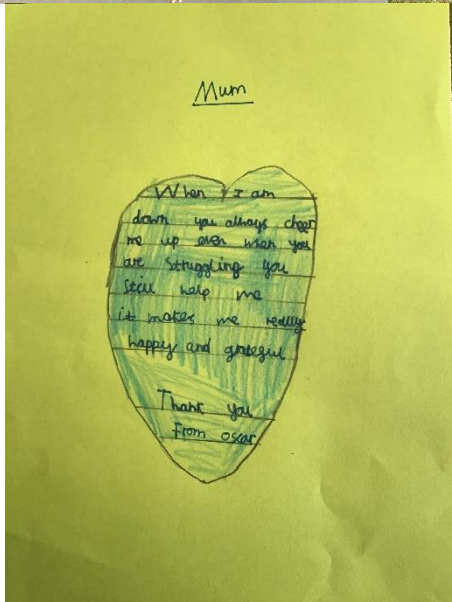 Mum
When I am
down you always cheer
me up even when you
are struggling you
still help me
it makes me really
happy and grateful
Thank you
From oscar